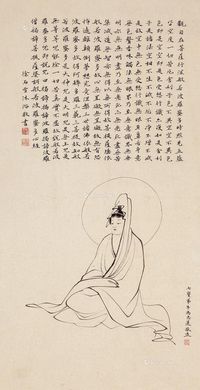 觀自在菩薩行深般若波羅蜜多時照見五蘊皆
空度一切苦厄舍利子色不異空空不異
色色即是空空即是色受想行識亦復如是舍利
子是諸法空相不生不滅不垢不淨不增不減
是故空中無色無受想行識無眼耳鼻舌身意無
色聲香味觸法無眼界乃至無意識界無無
明亦無無明盡乃至無老死亦無老死盡無苦
集滅道無智亦無得以無所得故菩提薩埵依
般若波羅蜜多故心無罣礙無罣礙故無有恐
怖遠離顛倒夢想究竟涅槃三世諸佛依般若
波羅蜜多故得阿耨多羅三藐三菩提故知般
若波羅蜜多是大神咒是大明咒是無上咒是
無等等咒能除一切苦真實不虛故說般
若波羅蜜多咒即說咒曰揭諦揭諦波羅揭諦波羅
僧揭諦菩提薩婆訶般若波羅蜜多心經
徐石雪沐浴敬書
弟子馮忠蓮敬造